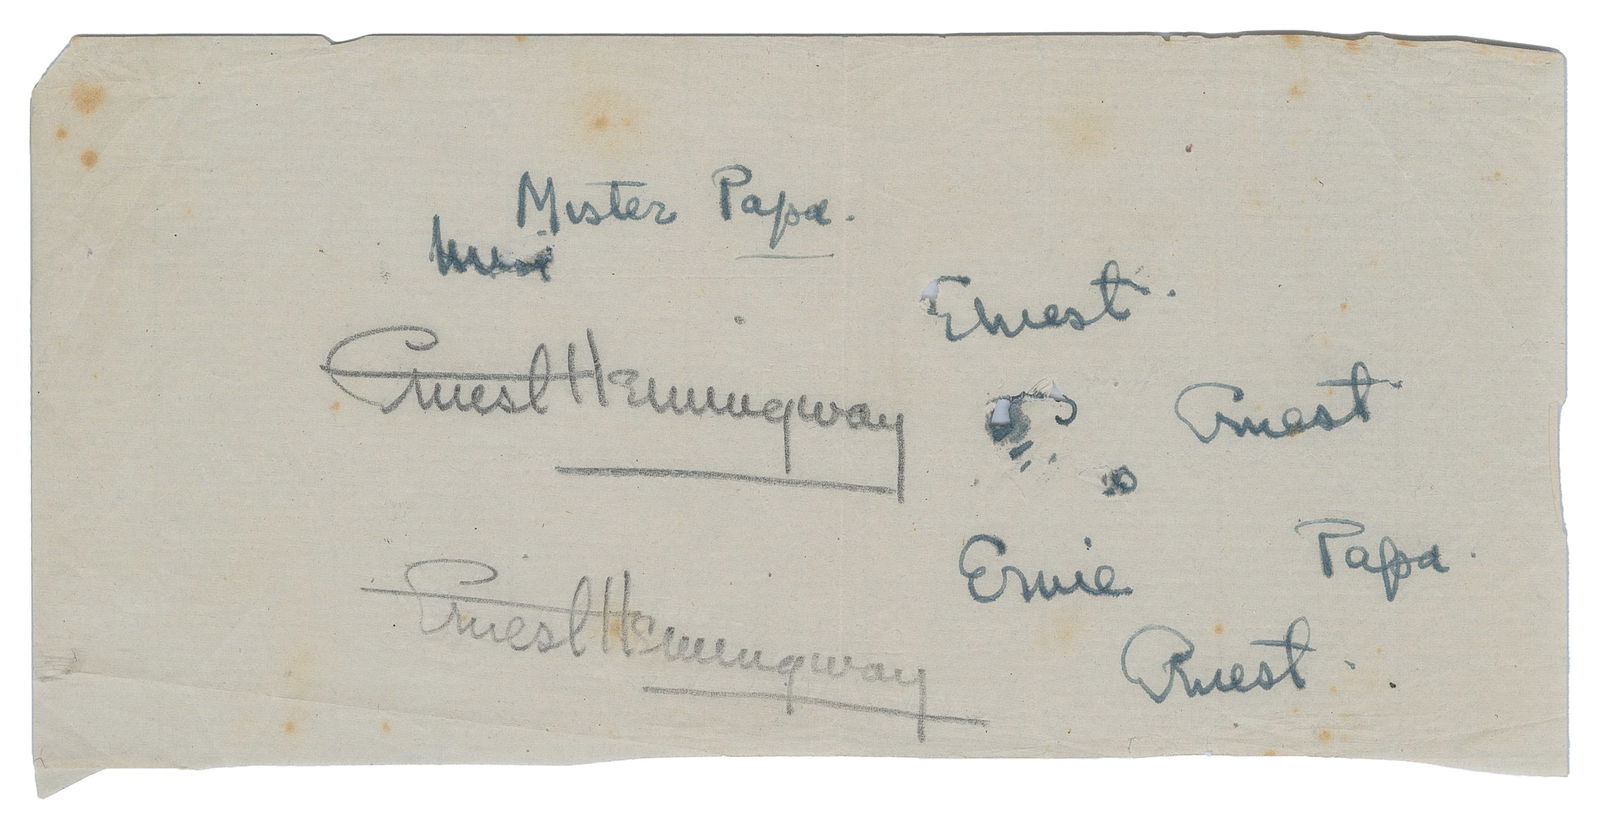 Mister Papa.
Ernest.
Ernest Hemingway
Ernest.
Ernie
Papa.
Ernest Hemingway
Ernest.